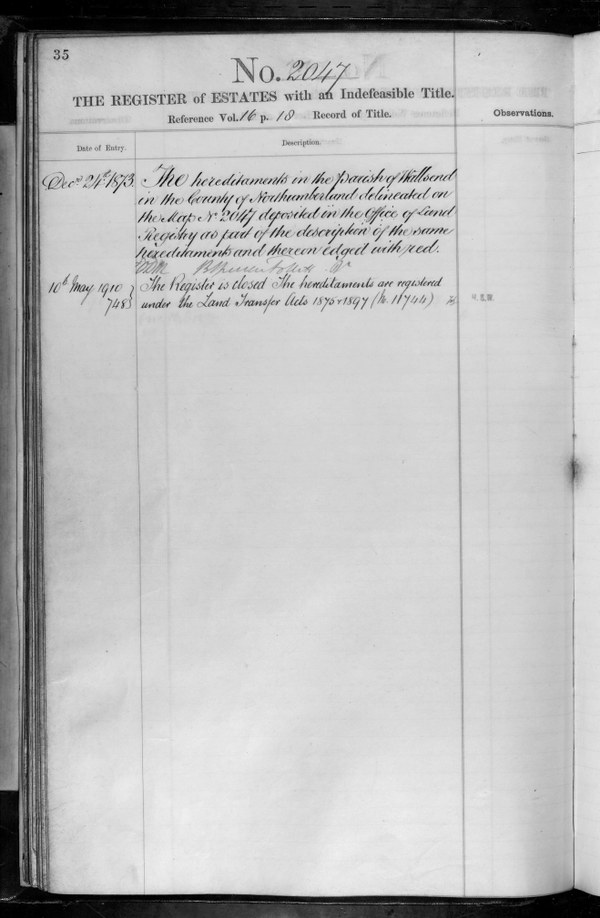 35
No. 2047
THE REGISTER of ESTATES with an Indefeasible Title.
Reference Vol. 16 p. 18 Record of Title.
Observations.
Date of Entry.
Description.
Decr 24th 1873. The hereditaments in the Parish of Wallsend
in the County of Northumberland delineated on
the Map No 2047 deposited in the Office of Land
Registry as part of the description of the same
hereditaments and thereon edged with red.
10th May 1910 } The Register is closed The hereditaments are registered
748 } under the Land Transfer Acts 1875 & 1897 (No. 11744)